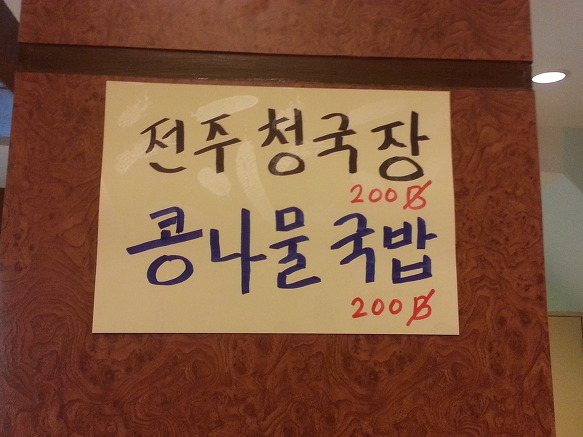 전주 청국장
200฿
콩나물 국밥
200฿